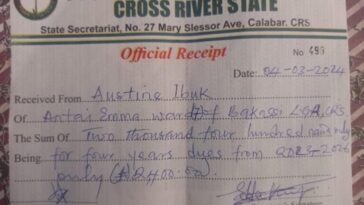 CROSS RIVER STATE
State Secretariat, No. 27 Mary Slessor Ave, Calabar. CRS
Official Receipt
No 495
Date: 04-03-2024
Received From Austine Ibuk
Of Antai Emma ward of Bakassi LGA, CRS
The Sum Of Two thousand four hundred naira only
Being for four years dues from 2023-2026
only (₦2400.00)